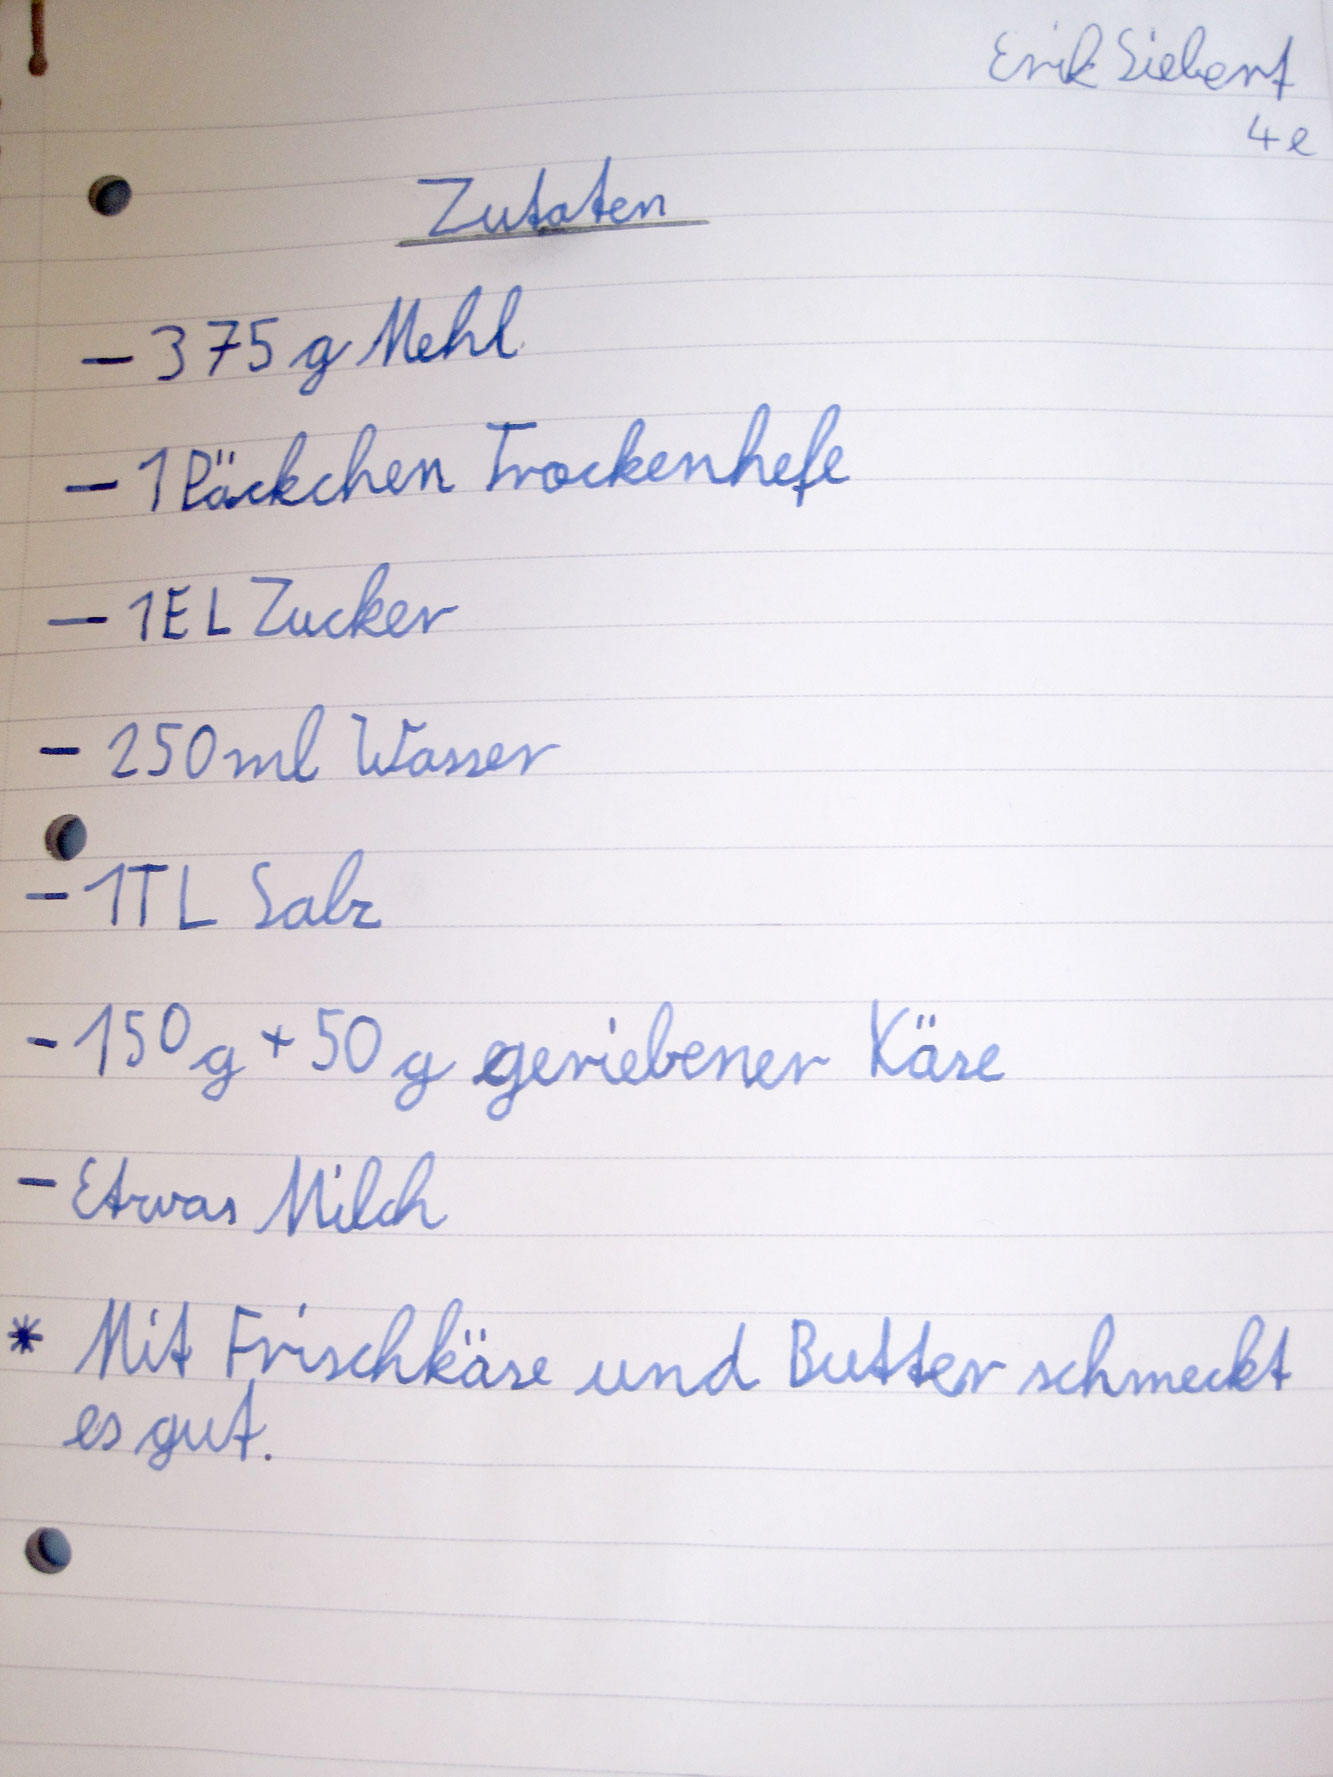 Erik Siebert
4e
Zutaten
- 375 g Mehl
- 1 Päckchen Trockenhefe
- 1 EL Zucker
- 250 ml Wasser
- 1 TL Salz
- 150 g + 50 g geriebener Käse
- Etwas Milch
* Mit Frischkäse und Butter schmeckt
es gut.